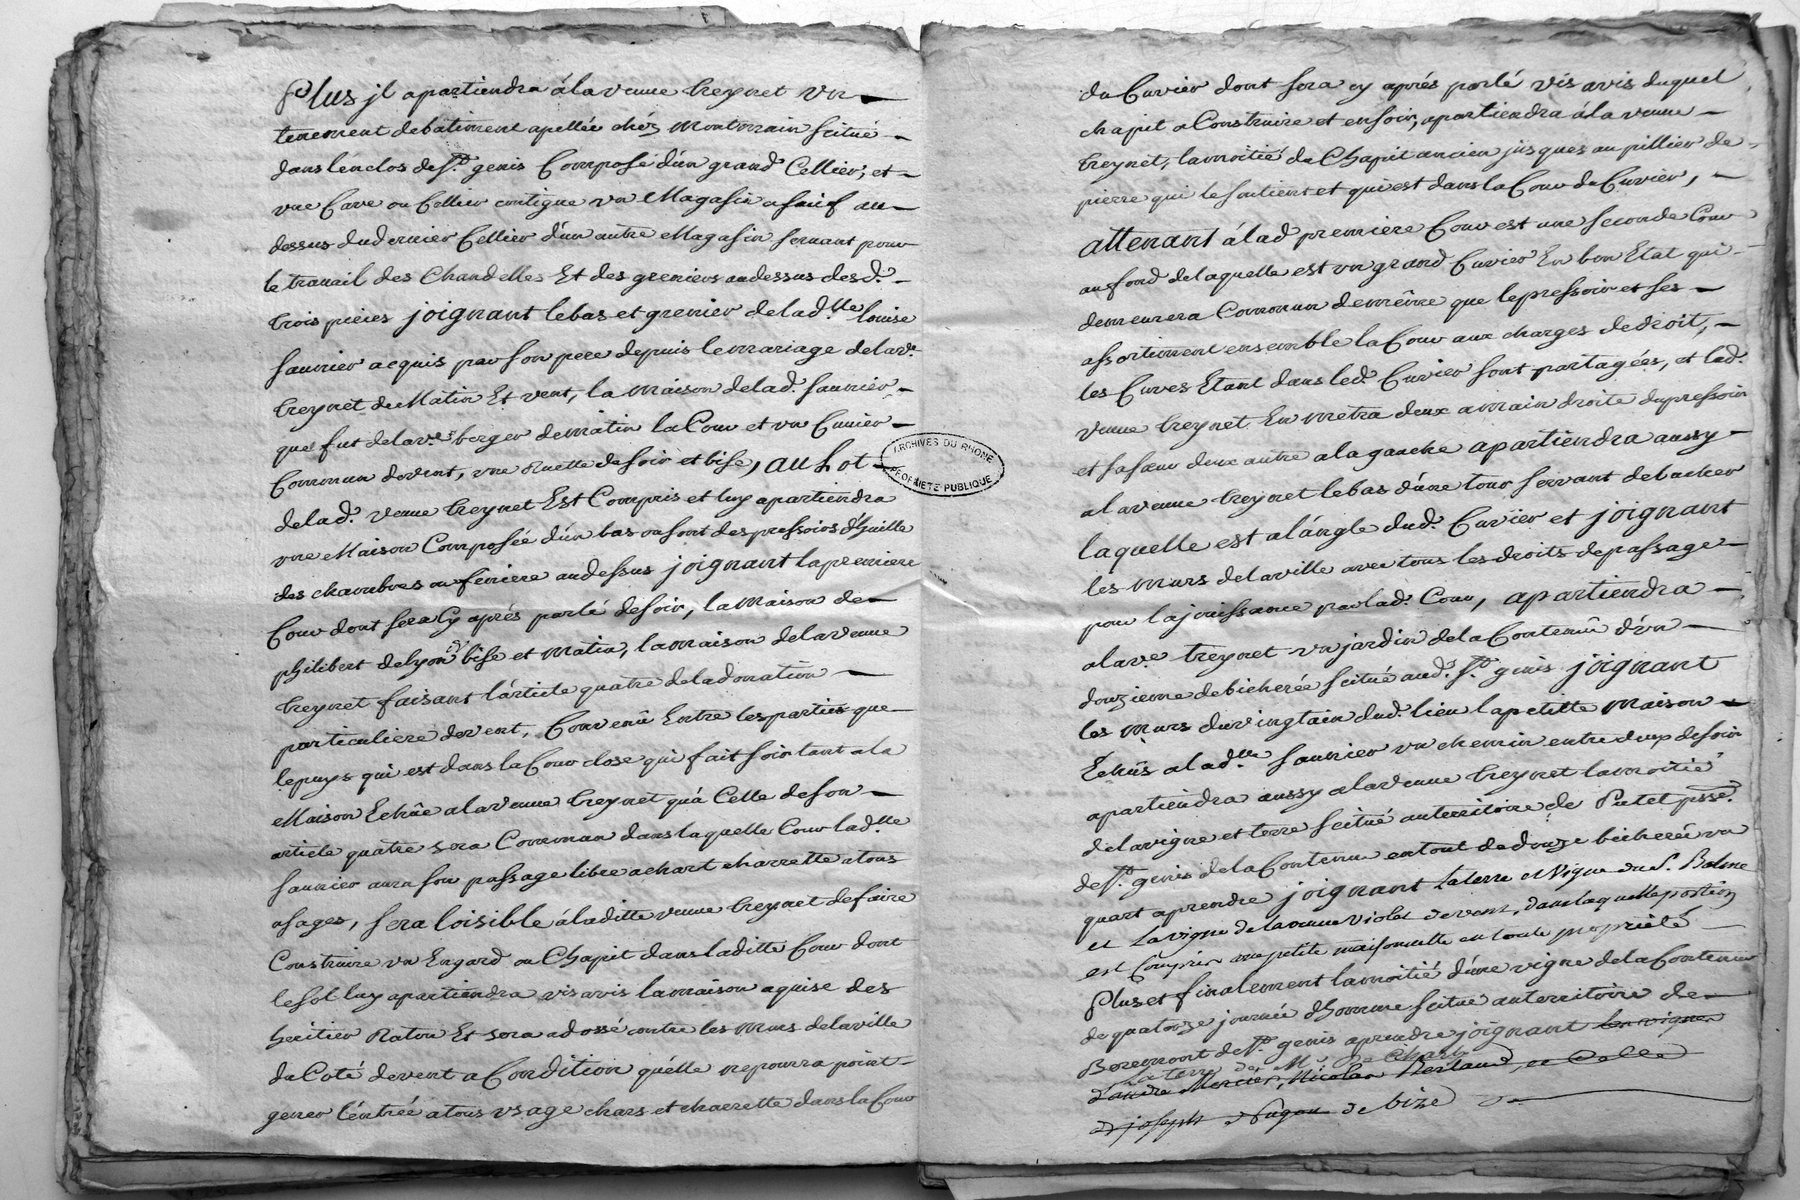 Plus jl apartiendra à la veuve treynet vn
tenement de batiment apellée chéz Montmain scitué
dans lénclos de St. genis Composé d'un grand Cellier, et
vne Cave ou Cellier contigue vn Magasin a suif au
dessus dudernier Cellier d'un autre Magasin servant pour
le travail des Chandelles Et des greniers audessus desd.
trois pieces joignant lebas et grenier de lad.lle louise
saunier acquis par son pere depuis le mariage de lav.e
treynet de Matin Et vent, la maison de lad. saunier
que fut de la v.e berger de matin la Cour et vn Cuvier
Commun de vent, vne Ruette de soir et bise, au Lot
de lad. veuve treynet Est Compris et luy apartiendra
vne Maison Composée d'un bas ou sont des pressoirs d'huille
des chambres ou feniere audessus joignant la premiere
Cour dont sera Cy aprés parlé de soir, la Maison de
philibert delyon bise et Matin, la maison de la veuve
treynet faisant lárticle quatre de la donation
particuliere de vent, Convenû Entre les parties que
le puys qui est dans la Cour close qui fait soir tant a la
Maison Echûe a la veuve treynet qu'á Celle de son
article quatre sera Commun dans laquelle Cour lad.lle
saunier aura son passage libre a chart charrette a tous
usages, sera loisible à laditte veuve treynet de faire
Construire vn Engard ou Chapit dans laditte Cour dont
le sol luy apartiendra vis avis la maison aquise des
heritier Raton Et sera adossé contre les Murs de la ville
du Coté de vent a Condition qu'élle ne pourra point
gener l'éntrée a tous vsage chars et charrette dans la Cour
du Cuvier dont sera cy aprés parlé vis avis duquel
chapit a Construire et en soir, apartiendra à la veuve
treynet, la moitié du Chapit ancien jusques au pillier de
pierre qui le soutient et qui est dans la Cour du Cuvier,
attenant á lad premiere Cour est une seconde Cour
au fond de laquelle est vn grand Cuvier En bon Etat qui
demeurera Commun de même que le pressoir et ses
assortiment ensemble la Cour aux charges de droit,
les Cuves Etant dans led. Cuvier sont partagées, et lad.
veuve treynet En metra deux a main droite du pressoir
et sa sœur deux autre a la gauche apartiendra aussy
a la veuve treynet le bas d'une tour servant de bucher
laquelle est a lángle dud. Cuvier et joignant
les murs de la ville avec tous les droits de passage
pour la jouissance par lad. Cour, apartiendra
a la v.e treynet vn jardin de la Contenûe d'vn
douzieme de bicherée scitué aud. St. genis joignant
les Murs du vingtain dud. lieu la petitte Maison
Echûs a lad.lle saunier vn chemin entre deux de soir
apartiendra aussy a la veuve treynet la moitié
de la vigne et terre scitué au territoire de Putel psse.
de St. genis de la Contenue en tout de douze bicherées vn
quart a prendre joignant La terre et Vigne du S. Balme
et La vigne de la veuve Violet de vent, dans laquelle portion
est Compris une petite maisonnette en toute propriété
Plus et finalement la moitié d'une vigne de la Contenue
de quatorze journée d'homme scitué au territoire de
Boremont de St. genis a prendre joignant la vigne
La terre de Mr. De Chars
d'andre Mercier, Nicolas Bertaud, et Celle
de joseph Dugau de bize
ARCHIVES DU RHONE
PROPRIETE PUBLIQUE